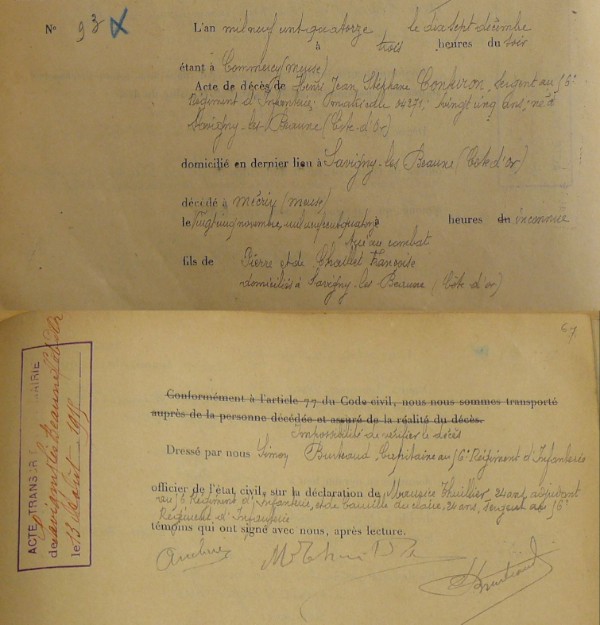 N° 93
L'an mil neuf cent quatorze le dix sept décembre
à trois heures du soir
étant à Commercy (Meuse)
Acte de décès de Henri Jean, Stéphane sergent au 16e
Régiment d'Infanterie, 04271, vingt cinq ans, né à
Savigny-les-Beaune (Côte-d'Or)
domicilié en dernier lieu à Savigny-les Beaune (Côte d'or)
décédé à Mécrin (Meuse)
le novembre, mil neuf cent quatorze à heures de inconnue
tué au combat
fils de Pierre et de Françoise
domiciliés à Savigny-les Beaune (Côte d'or)
67
Conformément à l'article 77 du Code civil, nous nous sommes transporté
auprès de la personne décédée et assuré de la réalité du décès.
Impossibilité de vérifier le décès
Dressé par nous Simon Capitaine au 16e Régiment d'Infanterie
officier de l'état civil, sur la déclaration de Maurice Thuillier, 24 ans, adjudant
au 16e Régiment d'Infanterie, et de 24 ans, sergent au 16e
Régiment d'Infanterie
témoins qui ont signé avec nous, après lecture.
ACTE TRANSCRIT MAIRIE
de Savigny les Beaune Côte d'Or
le 13 août 1915